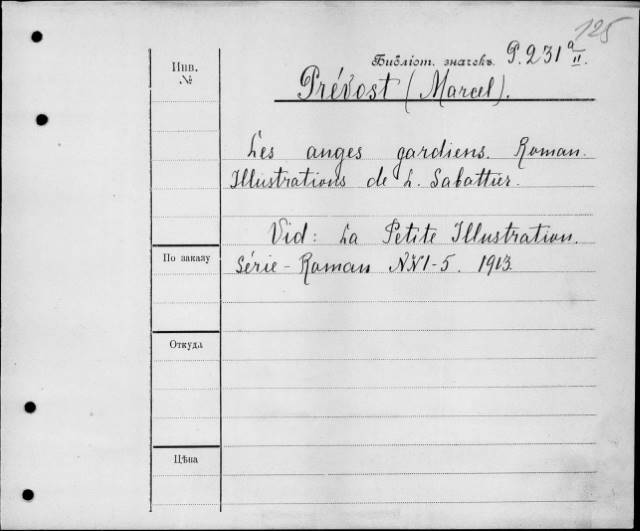 125
Инв.
№
Библіот. значекъ P. 231 a/II.
Prévost (Marcel).
Les anges gardiens. Roman.
Illustrations de L. Sabattier.
Vid: La Petite Illustration.
Série - Roman NN1-5. 1913
По заказу
Откуда
Цѣна